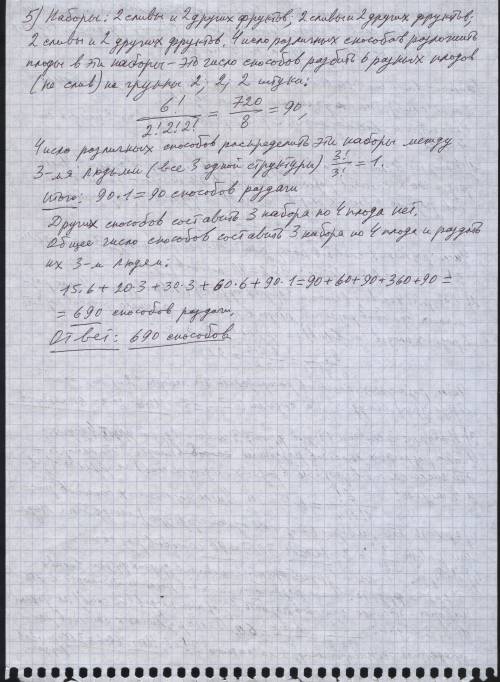 5) Наборы: 2 сливы и 2 других фруктов; 2 сливы и 2 других фруктов;
2 сливы и 2 других фруктов. Число различных способов разложить
плоды в эти наборы – это число способов разбить 6 разных плодов
(не слив) на группы 2, 2, 2 штуки:
6! / 2!2!2! = 720 / 8 = 90,
Число различных способов распределить эти наборы между
3-мя людьми (все 3 одной структуры) 3!/3! = 1.
Итого: 90·1 = 90 способов раздачи
Других способов составить 3 набора по 4 плода нет.
Общее число способов составить 3 набора по 4 плода и раздать
их 3-м людям:
15·6 + 20·3 + 30·3 + 60·6 + 90·1 = 90 + 60 + 90 + 360 + 90 =
= 690 способов раздачи.
Ответ: 690 способов